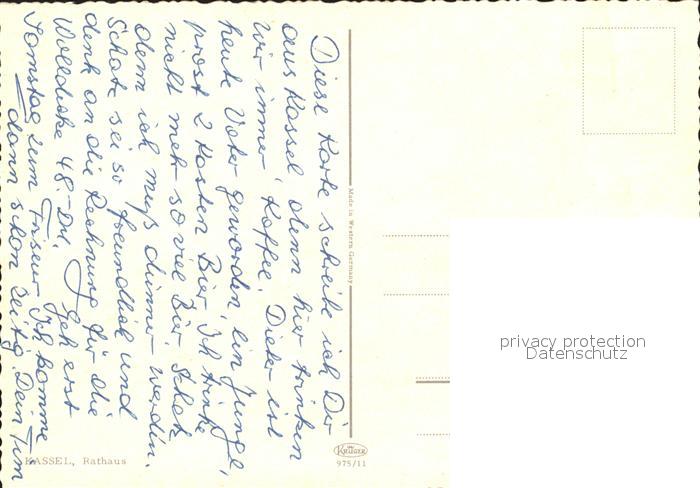 Diese Karte schreibe ich Dir
aus Kassel, denn hier trinken
wir immer Kaffee. Dieter ist
heute Vater geworden, ein Junge,
prost 2 Kasten Bier. Ich trinke
nicht mehr so viel Bier. Schatz
dem ich muß dünner werden.
Schatz sei so freundlich und
denk an die Rechnung für die
Wolldecke 48.- DM. Geh erst
Samstag zum Friseur. Ich komme
dann schon zeitig Dein Tim
Made in Western Germany
KRÜGER
975/11
KASSEL, Rathaus
privacy protection
Datenschutz